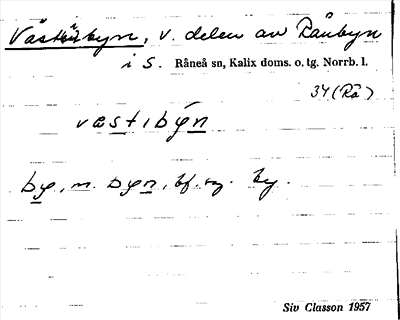 Västibyn, v. delen av Rånbyn
i S. Råneå sn, Kalix doms. o. tg. Norrb. l.
34 (Rå)
væstıbýn
by, n. byn, bf. sg. by.
Siv Classon 1957